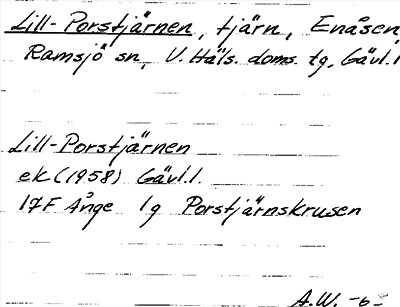 Lill-Porstjärnen, tjärn, Enåsen,
Ramsjö sn, V. Häls. doms. tg, Gävl.l
Lill-Porstjärnen
ek (1958) Gävl.l.
17F Ånge 1g Porstjärnskrusen
A.W. -6